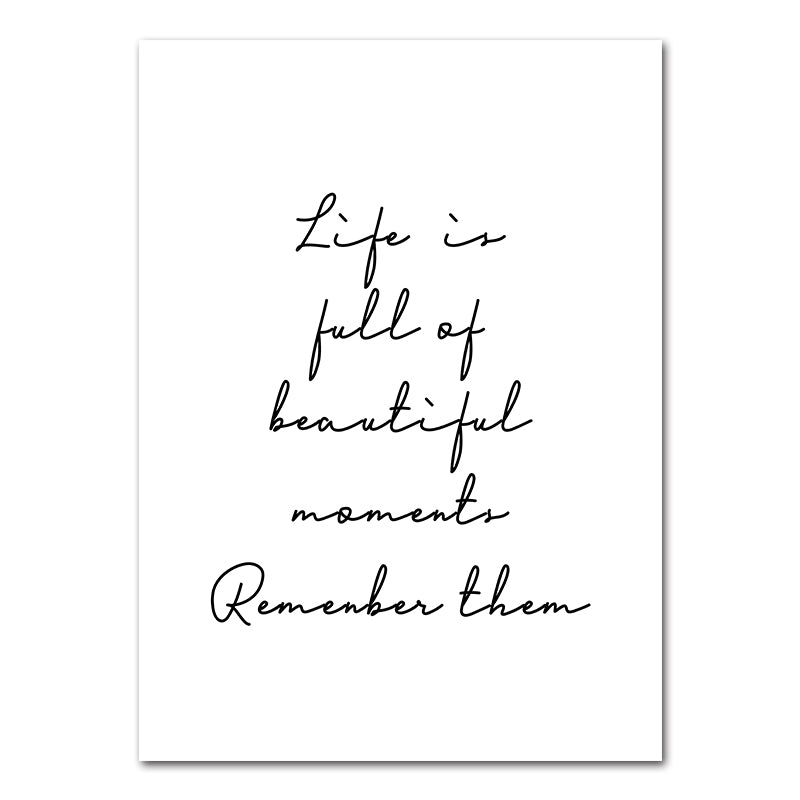 Life is
full of
beautiful
moments
Remenber them